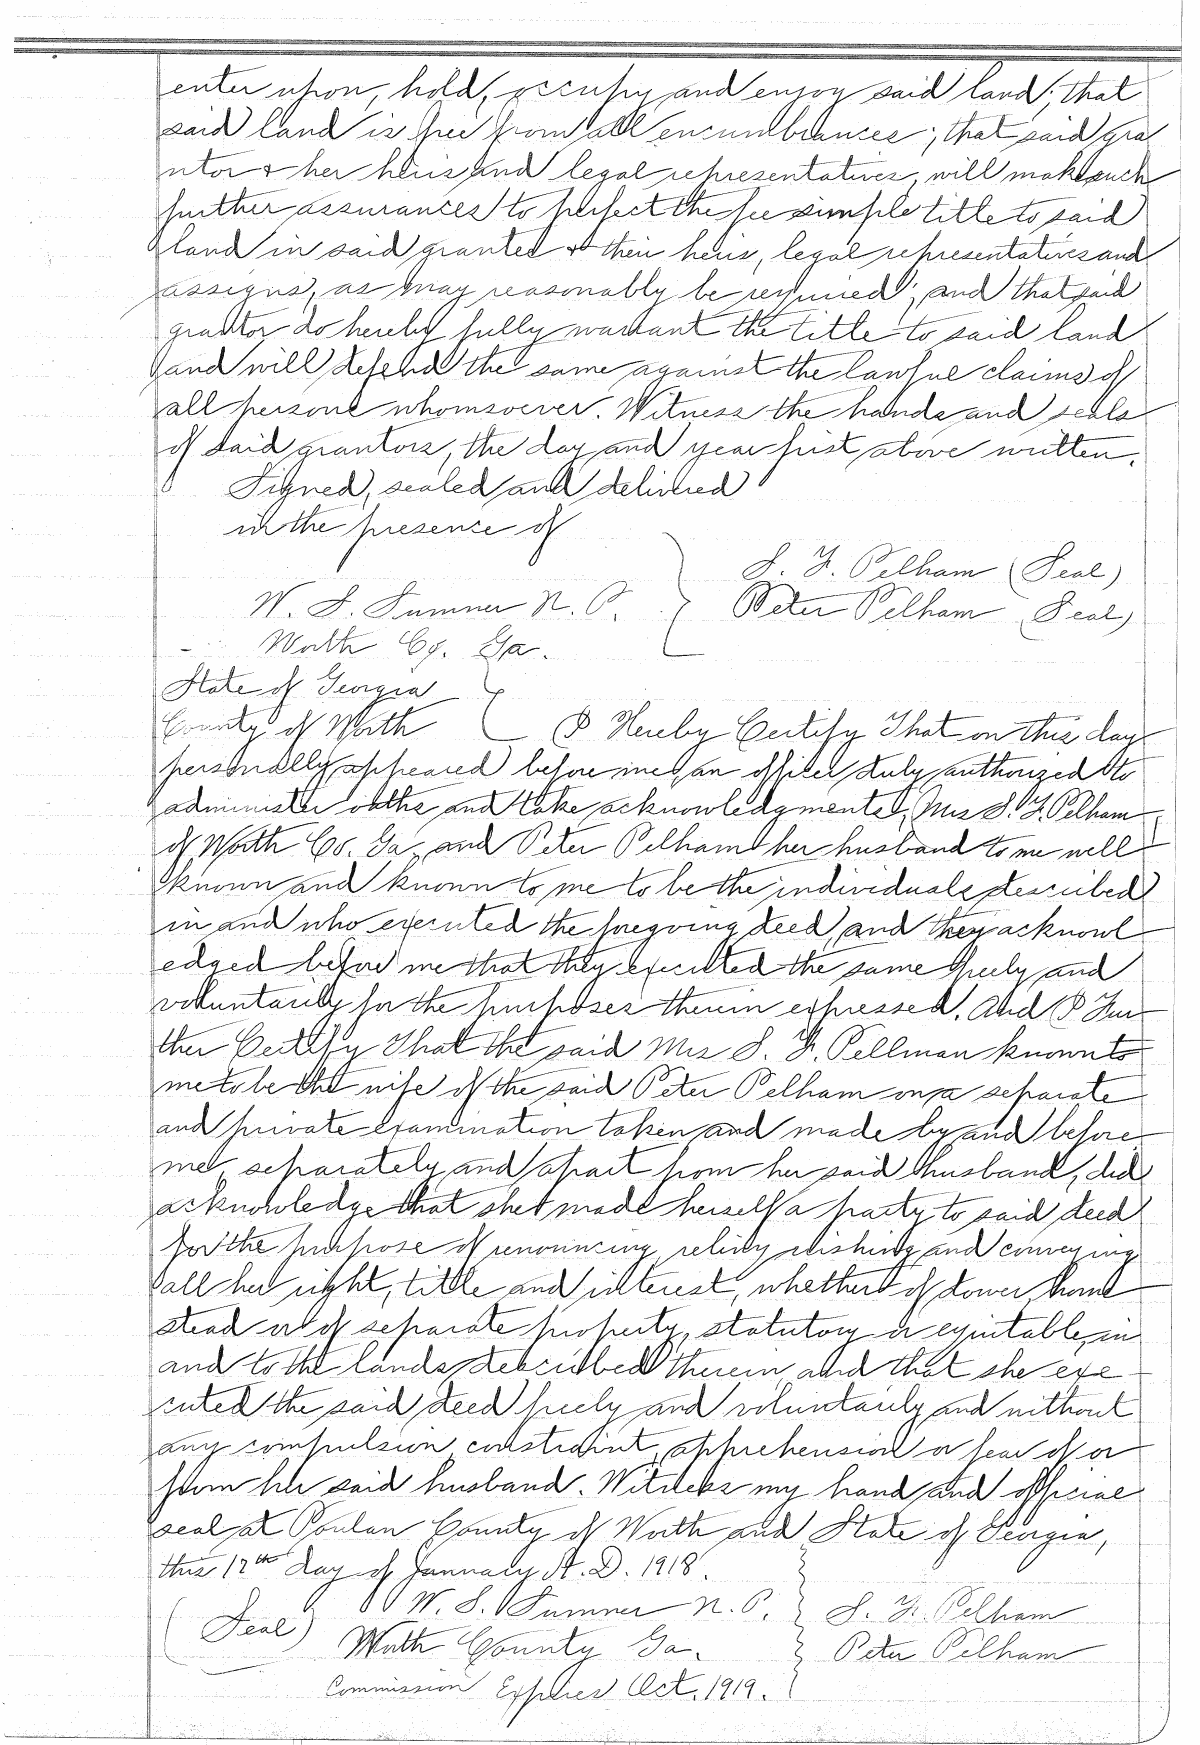 enter upon, hold, occupy and enjoy said land; that
said land is free from all encumbrances; that said gra
ntor & her heirs and legal representatives, will make such
further assurances to perfect the fee simple title to said
land in said grantee & their heirs, legal representatives and
assigns, as may reasonably be required; and that said
grantor do hereby fully warrant the title to said land
and will defend the same against the lawful claims of
all persons whomsoever. Witness the hands and seals
of said grantors, the day and year first above written.
Signed, sealed and delivered
in the presence of
S. F. Pelham (Seal)
W. S. Sumner N. P. Peter Pelham (Seal)
Worth Co. Ga.
State of Georgia
County of Worth I Hereby Certify That on this day
personally appeared before me, an officer duly authorized to
administer oaths and take acknowledgments, Mrs S. F. Pelham
of Worth Co. Ga, and Peter Pelham her husband to me well
known and known to me to be the individuals described
in and who executed the foregoing deed, and they acknowl
edged before me that they executed the same freely and
voluntarily for the purposes therein expressed. And I Fur
ther Certify That the said Mrs S. F. Pellman known to
me to be the wife of the said Peter Pelham on a separate
and private examination taken and made by and before
me, separately and apart from her said husband, did
acknowledge that she made herself a party to said deed
for the purpose of renouncing, relinquishing and conveying
all her right, title and interest, whether of dower, home
stead or of separate property, statutory or equitable, in
and to the lands described therein, and that she exe
cuted the said deed freely and voluntarily and without
any compulsion, constraint, apprehension or fear of or
from her said husband. Witness my hand and official
seal at Poulan County of Worth and State of Georgia,
this 12th day of January A. D. 1918.
(Seal) W. S. Sumner N. P. S. F. Pelham
Worth County Ga. Peter Pelham
Commission Expires Oct. 1919.